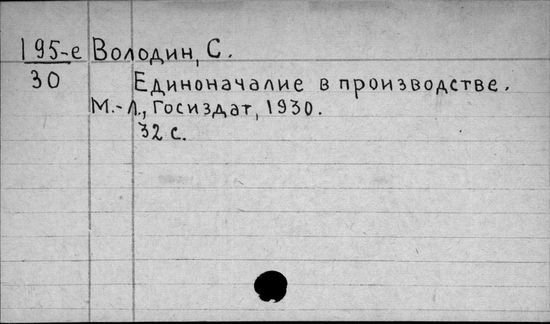 195-е Володин, С.
30 Единоначалие в производстве.
М.-Л., Госиздат, 1930.
32 с.